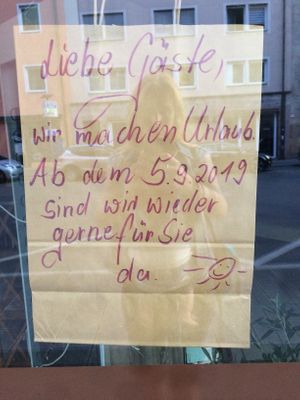 Liebe Gäste,
wir machen Urlaub.
Ab dem 5.9.2019
sind wir wieder
gerne für Sie
da.